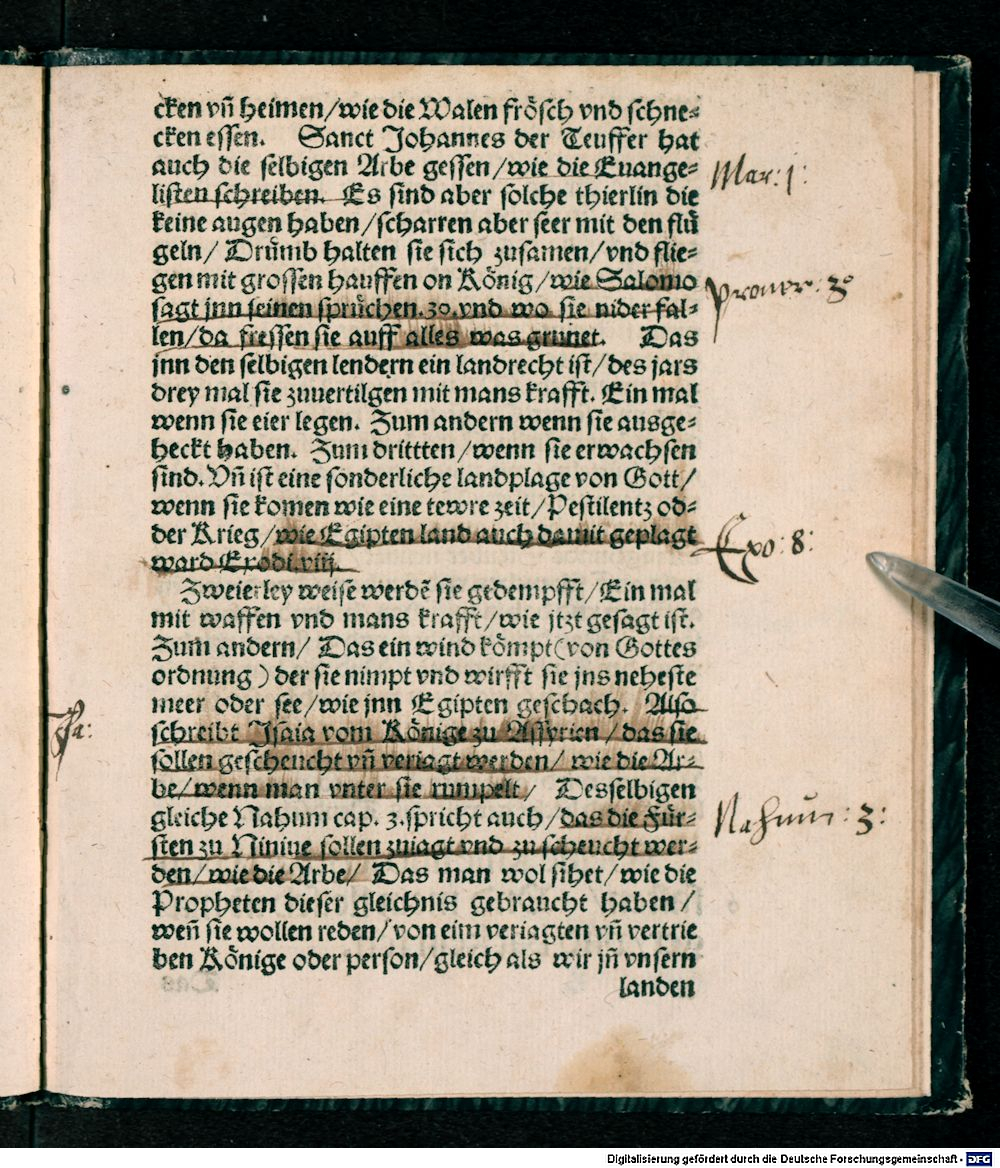 cken vn̄ heimen/wie die Walen frösch vnd schne⸗
cken essen. Sanct Johannes der Teuffer hat
auch die selbigen Arbe gessen/wie die Euange⸗
listen schreiben. Es sind aber solche thierlin die
keine augen haben/scharren aber seer mit den flü
geln/ Drümb halten sie sich zusamen/vnd flie⸗
gen mit grossen hauffen on König/wie Salomo
sagt jnn seinen sprüchen. 30. vnd wo sie nider fal⸗
len/da fressen sie auff alles was grunet. Das
jnn den selbigen lendern ein landrecht ist/des jars
drey mal sie zuuertilgen mit mans krafft. Ein mal
wenn sie eier legen. Zum andern wenn sie ausge⸗
heckt haben. Zum drittten/wenn sie erwachsen
sind. Vn̄ ist eine sonderliche landplage von Gott/
wenn sie komen wie eine tewre zeit/Pestilentz od⸗
der Krieg/wie Egipten land auch damit geplagt
ward Exodi. viij.
Zweierley weise werdē sie gedempfft/Ein mal
mit waffen vnd mans krafft/wie jtzt gesagt ist.
Zum andern/ Das ein wind kömpt(von Gottes
ordnung) der sie nimpt vnd wirfft sie jns neheste
meer oder see/wie jnn Egipten geschach. Also
schreibt Isaia vom Könige zu Assyrien/das sie
sollen gescheucht vn̄ veriagt werden/ wie die Ar⸗
be/wenn man vnter sie rumpelt/ Desselbigen
gleiche Nahum cap. 3. spricht auch/das die Für⸗
sten zu Niniue sollen zuiagt vnd zu scheucht wer⸗
den/wie die Arbe/ Das man wol sihet/wie die
Propheten dieser gleichnis gebraucht haben/
wen̄ sie wollen reden/von eim veriagten vn̄ vertrie
ben Könige oder person/gleich als wir jn̄ vnsern
landen
Mar: 1:
Prouer: 30
Exo: 8:
Nahum: 3:
Digitalisierung gefördert durch die Deutsche Forschungsgemeinschaft - DFG